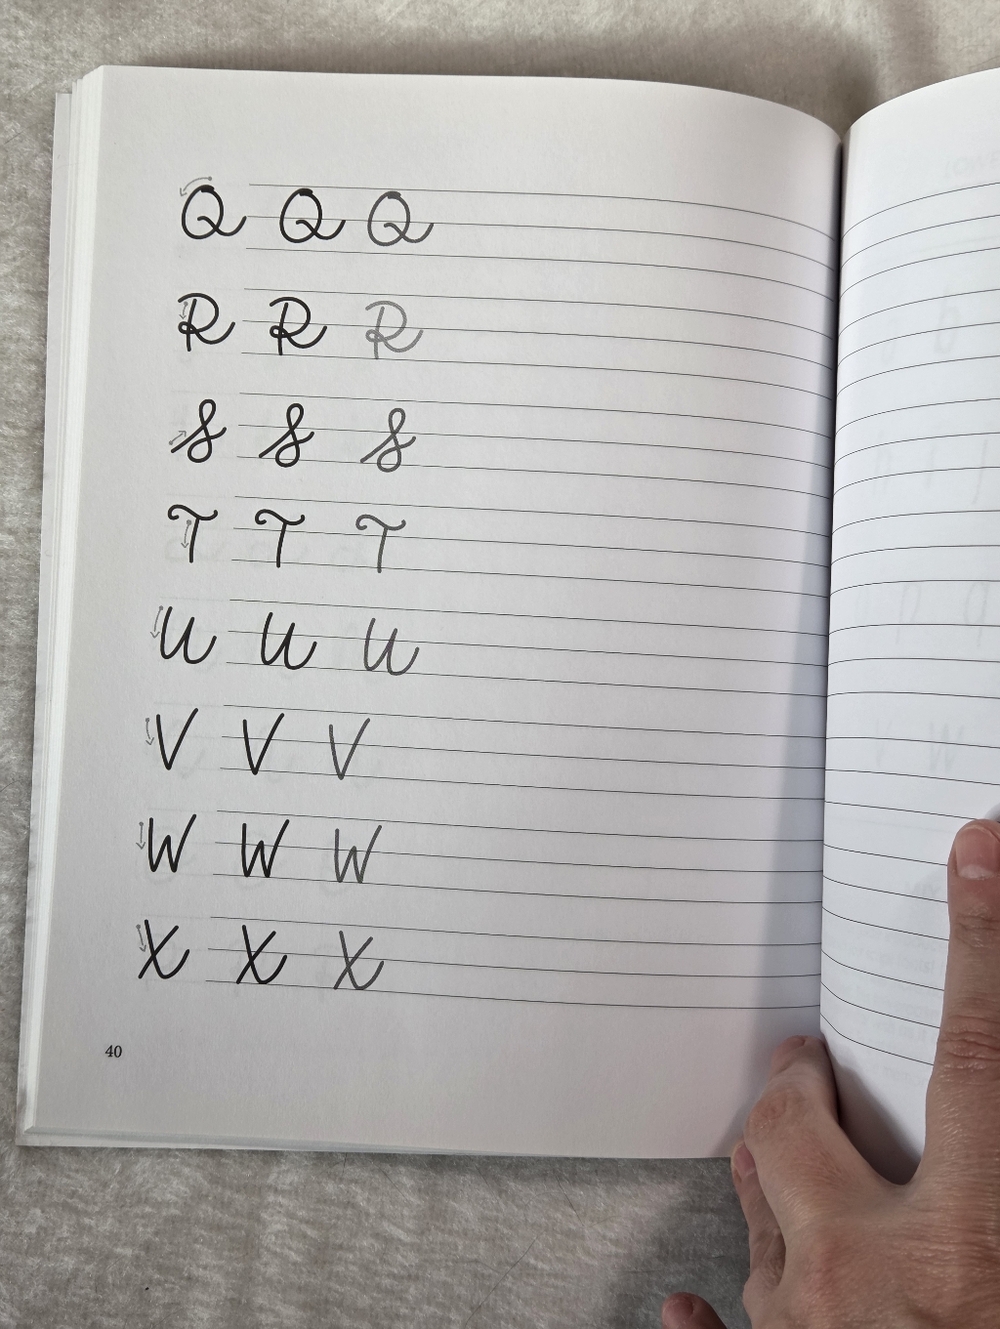 Q Q Q
R R R
S S S
T T T
U U U
V V V
W W W
X X X
40